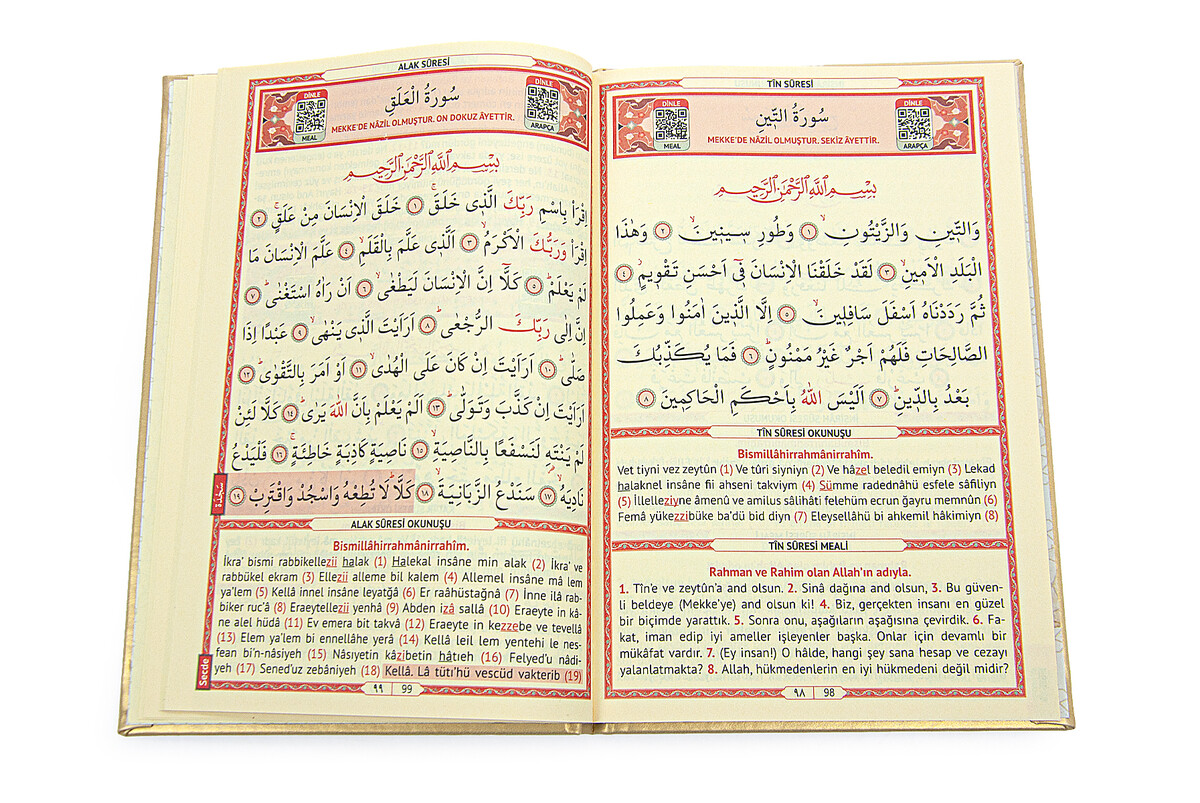 TÎN SÛRESİ
DİNLE
MEAL
سُورَةُ التّ۪ينِ
MEKKE'DE NÂZİL OLMUŞTUR. SEKİZ ÂYETTİR.
DİNLE
ARAPÇA
بِسْمِ اللّٰهِ الرَّحْمٰنِ الرَّح۪يمِ
وَالتّ۪ينِ وَالزَّيْتُونِۙ ﴿١﴾ وَطُورِ س۪ين۪ينَۙ ﴿٢﴾ وَهٰذَا
الْبَلَدِ الْاَم۪ينِۙ ﴿٣﴾ لَقَدْ خَلَقْنَا الْاِنْسَانَ ف۪ٓي اَحْسَنِ تَقْو۪يمٍۘ ﴿٤﴾
ثُمَّ رَدَدْنَاهُ اَسْفَلَ سَافِل۪ينَۙ ﴿٥﴾ اِلَّا الَّذ۪ينَ اٰمَنُوا وَعَمِلُوا
الصَّالِحَاتِ فَلَهُمْ اَجْرٌ غَيْرُ مَمْنُونٍۜ ﴿٦﴾ فَمَا يُكَذِّبُكَ
بَعْدُ بِالدّ۪ينِۜ ﴿٧﴾ اَلَيْسَ اللّٰهُ بِاَحْكَمِ الْحَاكِم۪ينَ ﴿٨﴾
TÎN SÛRESİ OKUNUŞU
Bismillâhirrahmânirrahîm.
Vet tiyni vez zeytûn (1) Ve tûri siyniyn (2) Ve hâzel beledil emiyn (3) Lekad
halaknel insâne fii ahseni takviym (4) Sümme radednâhü esfele sâfiliyn
(5) İllelleziyne âmenû ve amilus sâlihâti felehüm ecrun ğayru memnûn (6)
Femâ yükezzibüke ba'dü bid diyn (7) Eleysellâhü bi ahkemil hâkimiyn (8)
TÎN SÛRESİ MEALİ
Rahman ve Rahim olan Allah'ın adıyla.
1. Tîn'e ve zeytûn'a and olsun. 2. Sinâ dağına and olsun, 3. Bu güven-
li beldeye (Mekke'ye) and olsun ki! 4. Biz, gerçekten insanı en güzel
bir biçimde yarattık. 5. Sonra onu, aşağıların aşağısına çevirdik. 6. Fa-
kat, iman edip iyi ameller işleyenler başka. Onlar için devamlı bir
mükâfat vardır. 7. (Ey insan!) O hâlde, hangi şey sana hesap ve cezayı
yalanlatmakta? 8. Allah, hükmedenlerin en iyi hükmedeni değil midir?
٩٨ 98
ALAK SÛRESİ
DİNLE
MEAL
سُورَةُ الْعَلَقِ
MEKKE'DE NÂZİL OLMUŞTUR. ON DOKUZ ÂYETTİR.
DİNLE
ARAPÇA
بِسْمِ اللّٰهِ الرَّحْمٰنِ الرَّح۪يمِ
اِقْرَأْ بِاسْمِ رَبِّكَ الَّذ۪ي خَلَقَۚ ﴿١﴾ خَلَقَ الْاِنْسَانَ مِنْ عَلَقٍۚ ﴿٢﴾
اِقْرَأْ وَرَبُّكَ الْاَكْرَمُۙ ﴿٣﴾ اَلَّذ۪ي عَلَّمَ بِالْقَلَمِۙ ﴿٤﴾ عَلَّمَ الْاِنْسَانَ مَا
لَمْ يَعْلَمْۜ ﴿٥﴾ كَلَّٓا اِنَّ الْاِنْسَانَ لَيَطْغٰىۙ ﴿٦﴾ اَنْ رَاٰهُ اسْتَغْنٰىۜ ﴿٧﴾
اِنَّ اِلٰى رَبِّكَ الرُّجْعٰىۜ ﴿٨﴾ اَرَاَيْتَ الَّذ۪ي يَنْهٰىۙ ﴿٩﴾ عَبْدًا اِذَا
صَلّٰىۜ ﴿١٠﴾ اَرَاَيْتَ اِنْ كَانَ عَلَى الْهُدٰىۙ ﴿١١﴾ اَوْ اَمَرَ بِالتَّقْوٰىۜ ﴿١٢﴾
اَرَاَيْتَ اِنْ كَذَّبَ وَتَوَلّٰىۜ ﴿١٣﴾ اَلَمْ يَعْلَمْ بِاَنَّ اللّٰهَ يَرٰىۜ ﴿١٤﴾ كَلَّا لَئِنْ
لَمْ يَنْتَهِ۬ لَنَسْفَعًا بِالنَّاصِيَةِۙ ﴿١٥﴾ نَاصِيَةٍ كَاذِبَةٍ خَاطِئَةٍۚ ﴿١٦﴾ فَلْيَدْعُ
نَادِيَهُۙ ﴿١٧﴾ سَنَدْعُ الزَّبَانِيَةَۙ ﴿١٨﴾ كَلَّاۜ لَا تُطِعْهُ وَاسْجُدْ وَاقْتَرِبْ ﴿١٩﴾
سَجْدَة
ALAK SÛRESİ OKUNUŞU
Bismillâhirrahmânirrahîm.
İkra' bismi rabbikellezii halak (1) Halekal insâne min alak (2) İkra' ve
rabbükel ekram (3) Ellezii alleme bil kalem (4) Allemel insâne mâ lem
ya'lem (5) Kellâ innel insâne leyatğâ (6) Er raâhüstağnâ (7) İnne ilâ rab-
biker ruc'â (8) Eraeytellezii yenhâ (9) Abden izâ sallâ (10) Eraeyte in kâ-
ne alel hüdâ (11) Ev emera bit takvâ (12) Eraeyte in kezzebe ve tevellâ
(13) Elem ya'lem bi ennellâhe yerâ (14) Kellâ leil lem yentehi le nes-
fean bi'n-nâsiyeh (15) Nâsıyetin kâzibetin hâtıeh (16) Felyed'u nâdi-
yeh (17) Sened'uz zebâniyeh (18) Kellâ. Lâ tütı'hü vescüd vakterib (19)
Secde
٩٩ 99